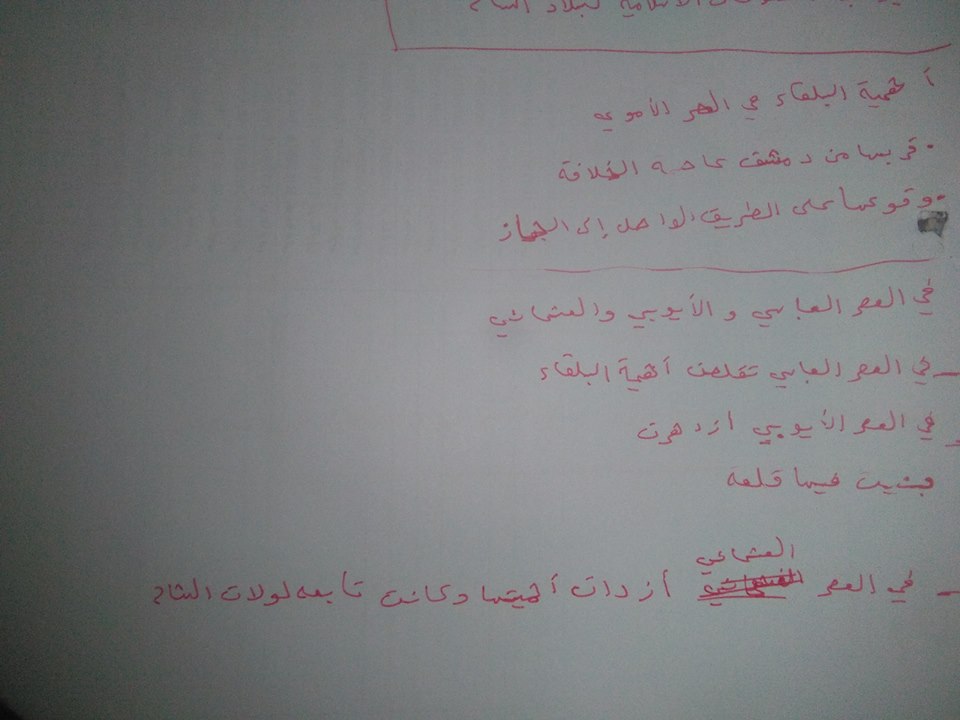 الاسلامية لبلاد الشام
أهمية البلقاء في العصر الأموي
• قربها من دمشق عاصمة الخلافة
• وقوعها على الطريق الواصل إلى الحجاز
في العصر العباسي و الأيوبي والعثماني
- في العصر العباسي تقلصت أهمية البلقاء
- في العصر الأيوبي ازدهرت
فبنيت فيها قلعة
العثماني
- في العصر أزدات أهميتها وكانت تابعه لولات الشام